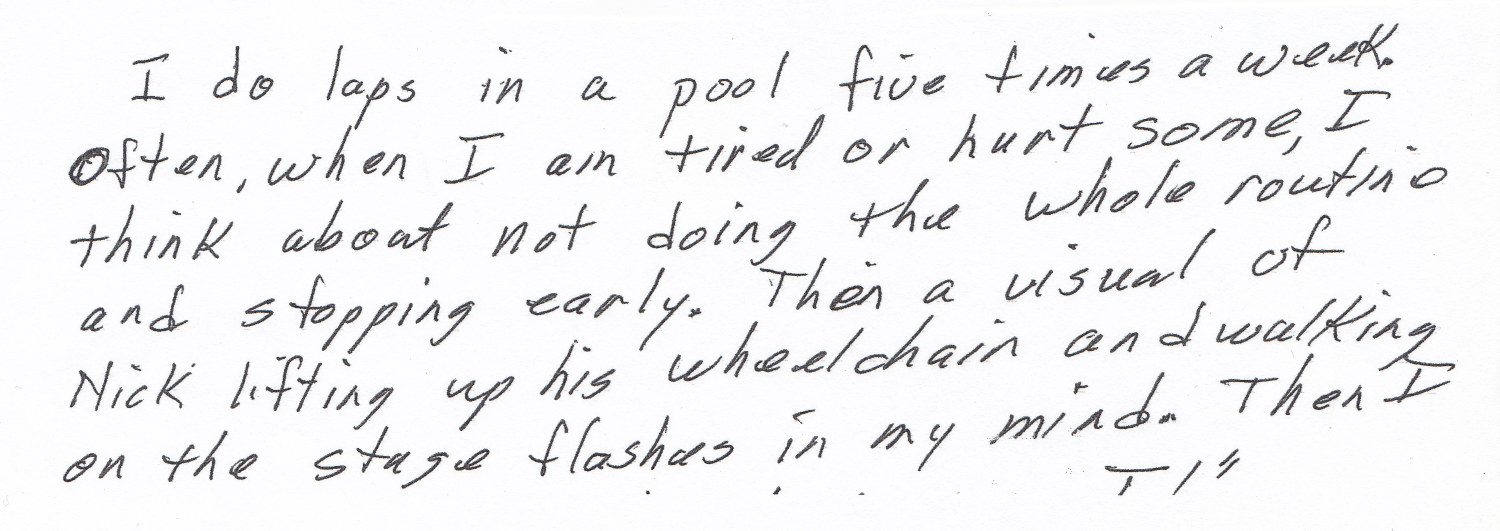 I do laps in a pool five times a week.
Often, when I am tired or hurt some, I
think about not doing the whole routine
and stopping early. Then a visual of
Nick lifting up his wheelchair and walking
on the stage flashes in my mind. Then I